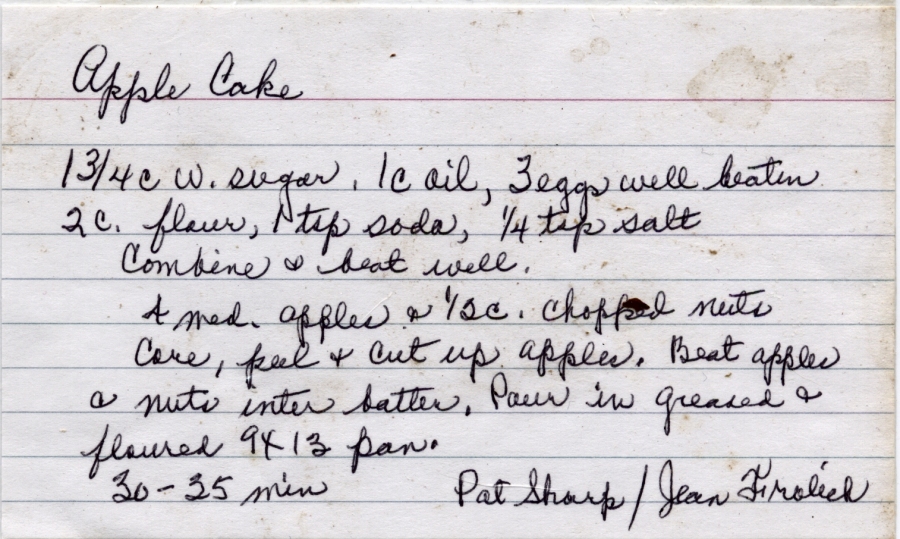 Apple Cake
1 3/4 c w. sugar, 1c oil, 3 eggs well beaten
2 c. flour, 1 tsp soda, 1/4 tsp salt
Combine & beat well.
4 med. apples & 1/2 c. chopped nuts
Core, peel & cut up apples. Beat apples
& nuts inter batter. Pour in greased &
floured 9X13 pan.
30-35 min Pat Sharp / Jean Firolich